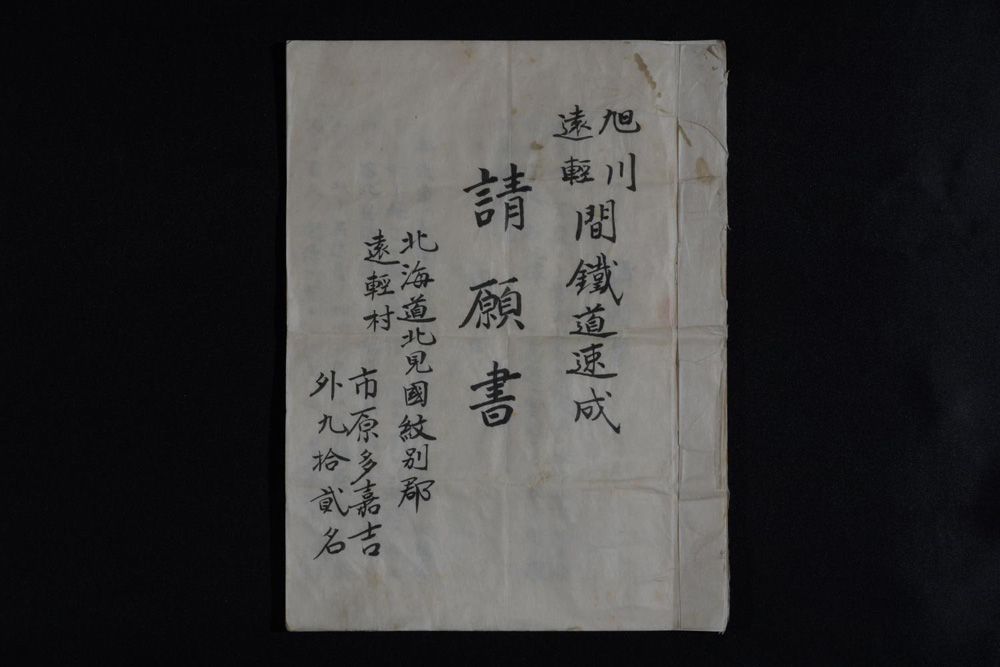 旭川
遠輕
間鐵道速成
請願書
北海道北見國紋別郡
遠輕村
市原多嘉吉
外九拾貳名